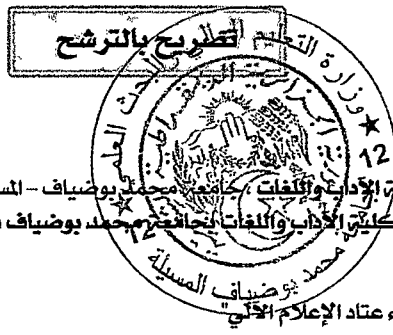 تصريح بالترشح
وزارة التعليم العالي والبحث العلمي
الجزائرية الديمقراطية
12
ية الآداب واللغات ، جامعة محمد بوضياف - المس
كلية الآداب واللغات لجامعة محمد بوضياف
محمد بوضياف المسيلة
ء عتاد الإعلام الآلي"